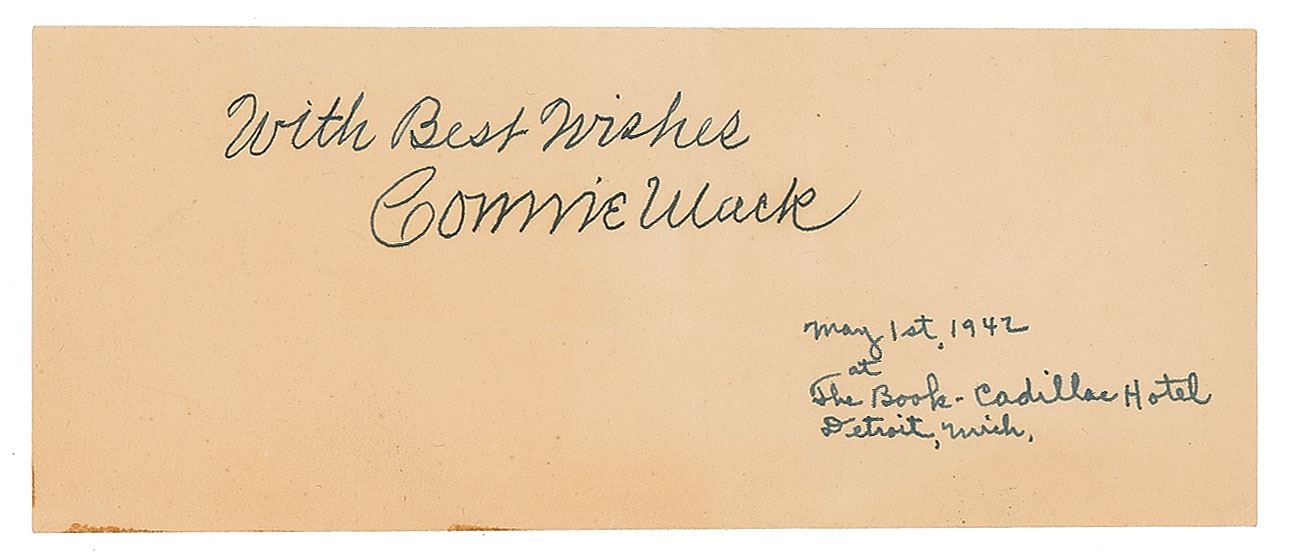 With Best Wishes
Connie Mack
May 1st, 1942
at
The Book-Cadillac Hotel
Detroit, Mich.